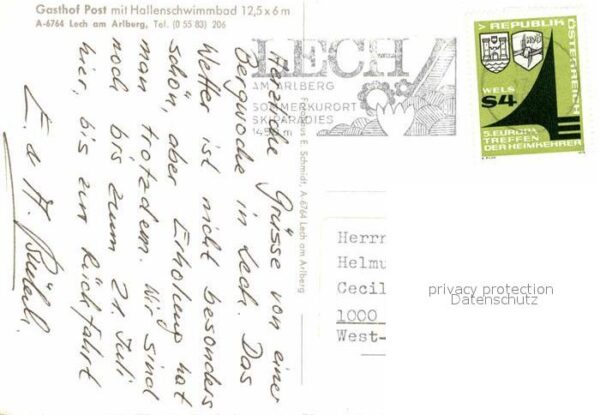 Gasthof Post mit Hallenschwimmbad 12,5 x 6 m
A-6764 Lech am Arlberg, Tel. (0 55 83) 206
Herzliche Grüsse von einer
Bergwoche in Lech. Das
Wetter ist nicht besonders
schön, aber Erholung hat
man trotzdem. Wir sind
noch bis zum 21. Juli
hier, bis zur Rückfahrt
E. u. H.
E. Schmidt, A-6764 Lech am Arlberg
LECH
AM ARLBERG
SOMMERKURORT
SKIPARADIES
REPUBLIK
ÖSTERREICH
WELS
S4
5. EUROPA
TREFFEN
DER HEIMKEHRER
Herrn
Helmu
Cecil
1000
West-
privacy protection
Datenschutz